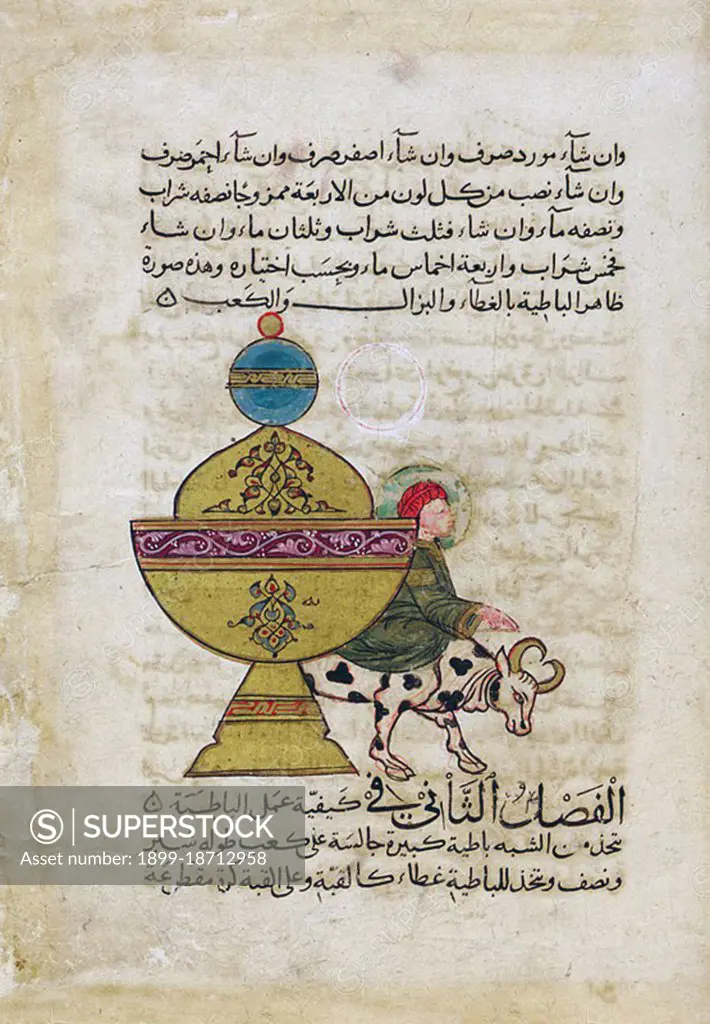 وان شآء مورد صرف وان شآء اصفر صرف وان شآء احمر صرف
وان شآء نصب من كل لون من الاربعة ممزوجا نصفه شراب
ونصفه مآء وان شاء فثلث شراب وثلثان ماء وان شاء
فخمس شراب واربعة اخماس ماء وبحسب اختياره وهذه صورة
ظاهر الباطية بالغطاء والبزال والكعب
الفصل الثاني في كيفية عمل الباطية
تتخذ من الشبه باطية كبيرة جالسة على كعب طوله شبر
ونصف وتتخذ للباطية غطاء كالقبة وعلى القبة كرة مقطعة
SUPERSTOCK
Asset number: 1899-18712958